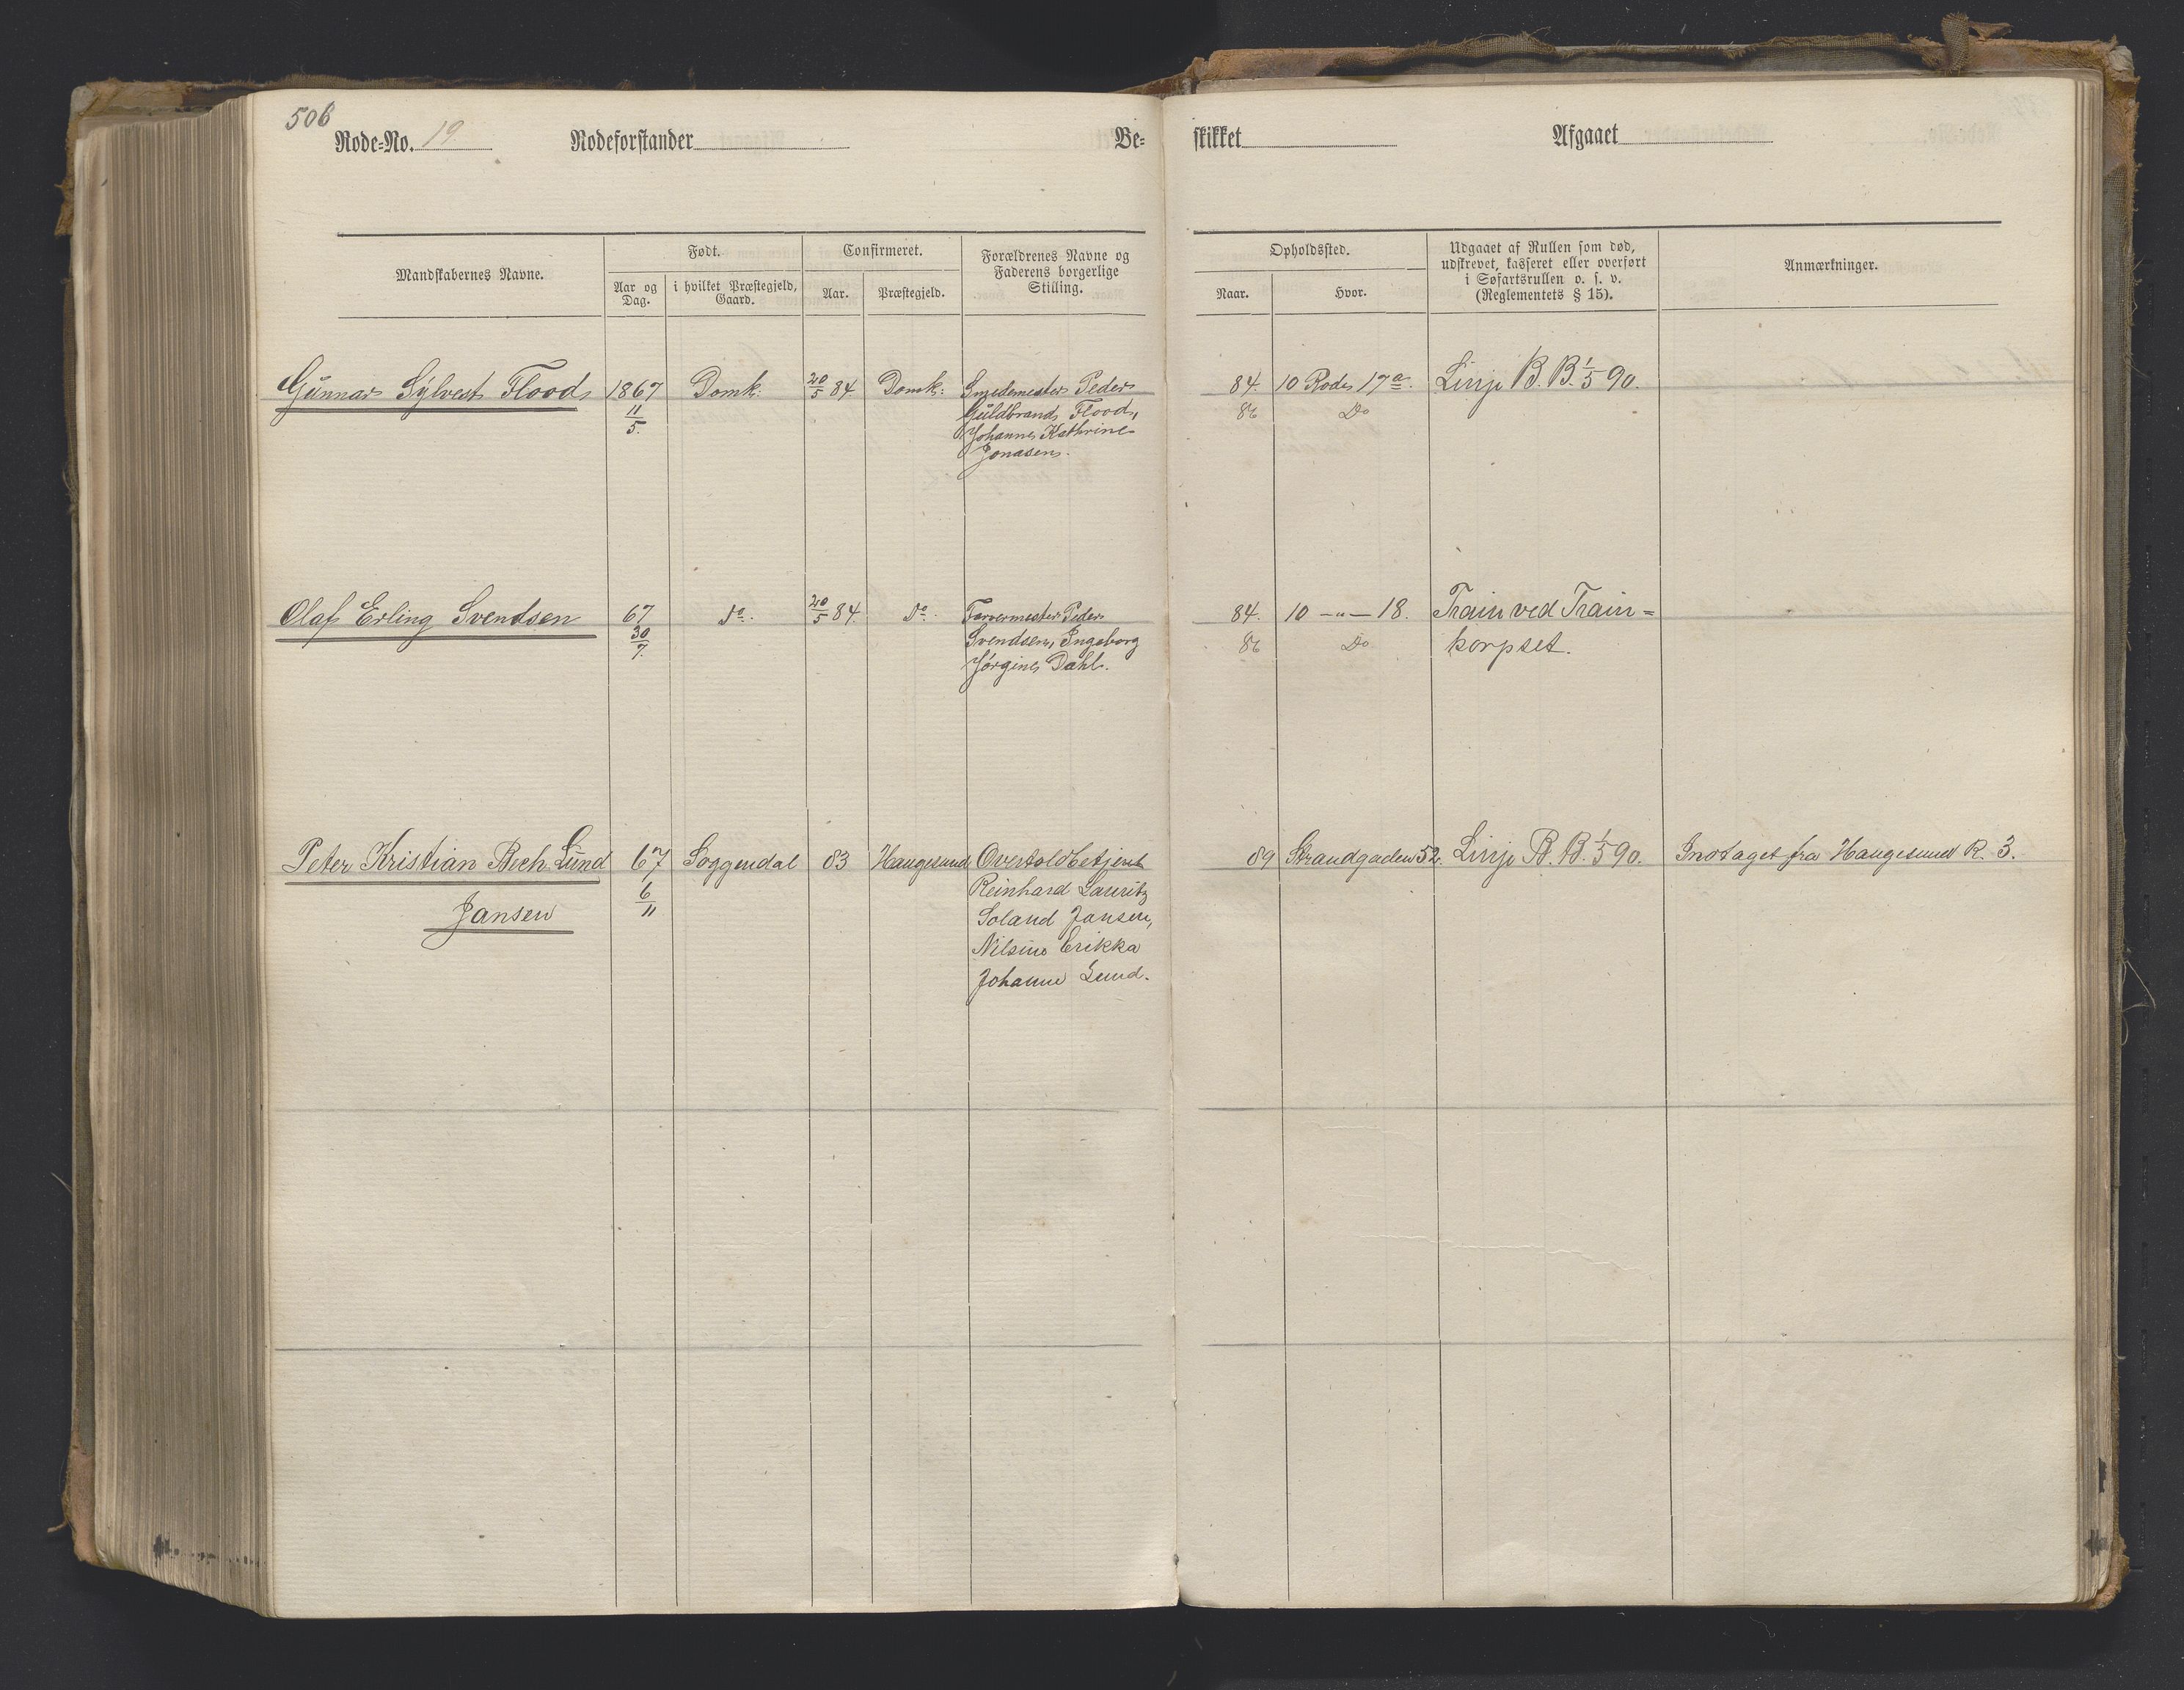 506
Rode-No. 19 Rodeforstander Be- skikket Afgaaet
Mandskabernes Navne.
Født.
Aar og Dag.
i hvilket Præstegjeld, Gaard.
Confirmeret.
Aar.
Præstegjeld.
Forældrenes Navne og
Faderens borgerlige
Stilling.
Opholdssted.
Naar.
Hvor.
Udgaaet af Rullen som død,
udskrevet, kasseret eller overført
i Søfartsrullen o. s. v.
(Reglementets § 15).
Anmærkninger.
Gunnar Sylvest Flood 1867 Domk: 20/5 84 Domk: Smedemester Peder 84. 10 Rode 17a. Linje B. B. 1/5 90.
11/5. Guldbrand Flood, 86 Do
Johanne Kathrine
Jonasen.
Olaf Erling Svendsen 67 Do. 20/5 84. Do. Farvermester Peder 84. 10 —"— 18. Train ved Train=
30/7. Svendsen, Ingeborg 86 Do korpset.
Jørgine Dahl.
Peter Kristian Bech Lund 67 Soggendal 83 Haugesund Overtoldbetjent 89 Strandgaden 52. Linje B. B. 1/5 90. Indtaget fra Haugesund R. 3.
Jansen 6/11 Reinhard Lauritz
Soland Jansen,
Nilsine Erikka
Johanne Lund.